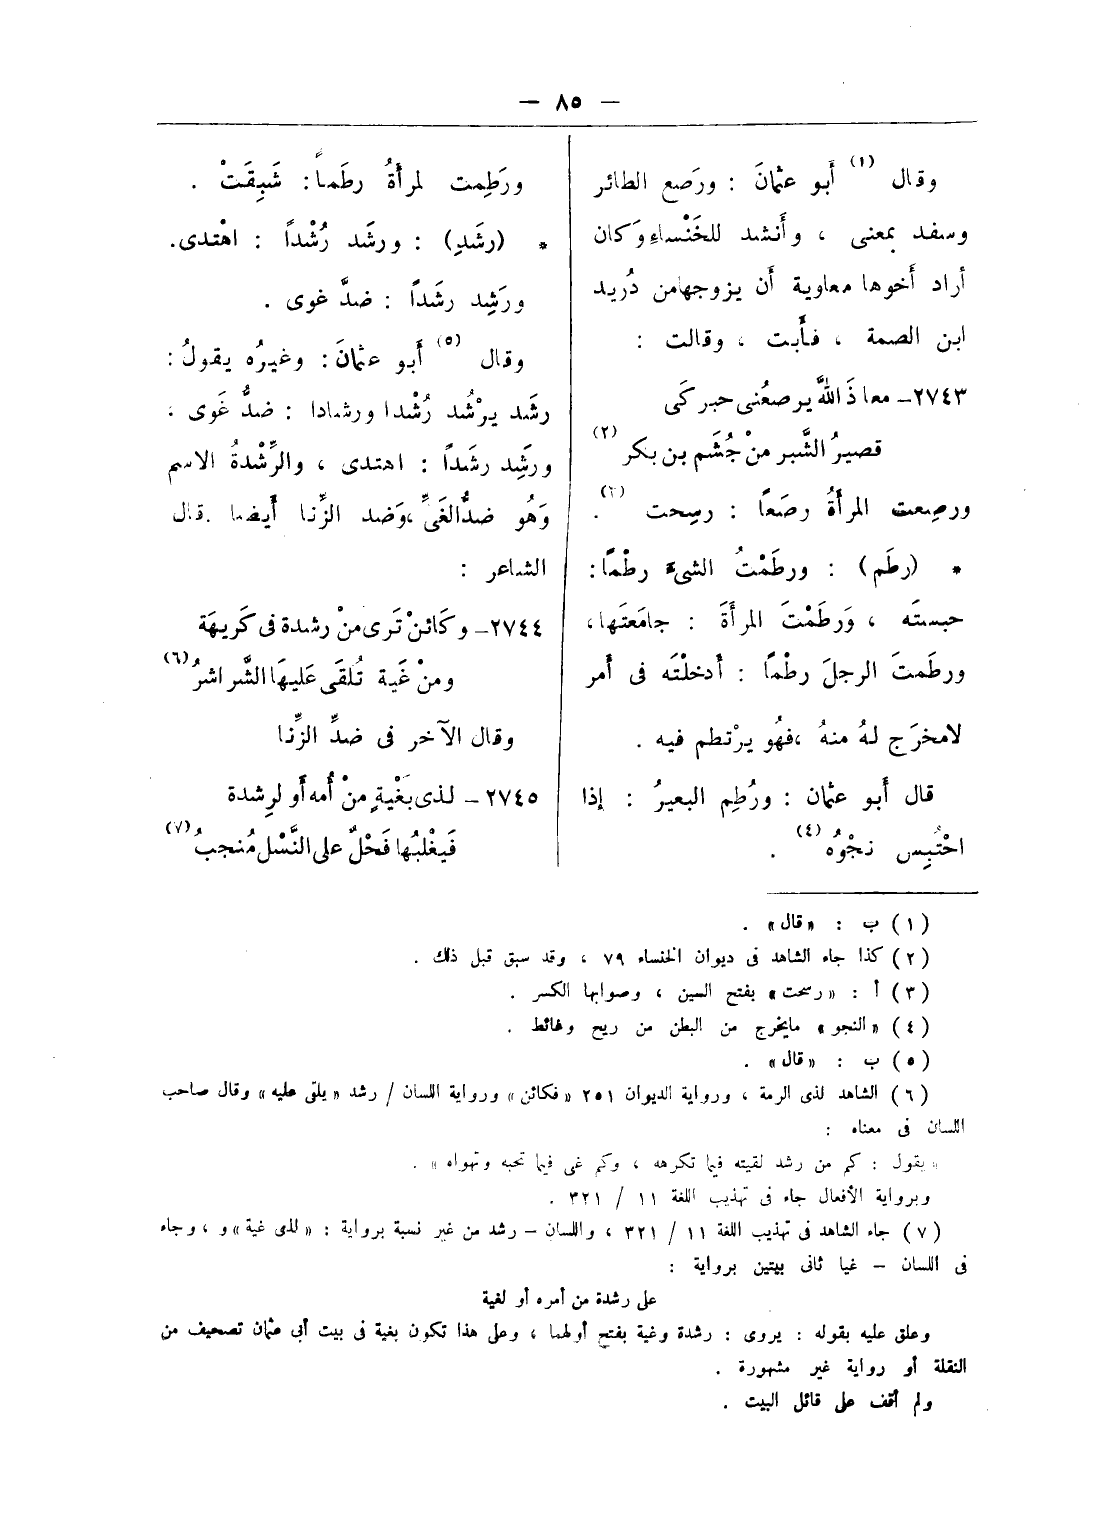 — ٨٥ —
وقال (١) أَبو عثمانَ : ورَصع الطائر
وسفد بمعنى ، وأَنشد للخَنْساءِ وَكان
أراد أَخوها معاوية أَن يزوجهامن دُريد
ابن الصمة ، فأَبت ، وقالت :
٢٧٤٣– معاذَ اللهَّ يرصعُنى حبركَى
قصيرُ الشَّبر منْ جُشَم بن بكر (٢)
ورصِعت المرأَةُ رصَعًا : رسِحت (٣) .
* (رطَم) : ورطَمْتُ الشىء رطْمًا :
حبستَه ، وَرطَمْتَ المرأَةَ : جامَعتَها ،
ورطَمتَ الرجلَ رطْمًا : أَدخلْتَه فى أَمر
لامخرَج لهُ منهُ ،فهُو يرْتطم فيه .
قال أَبو عثمان : ورُطِم البعيرُ : إذا
احْتُبِس نجْوُه (٤) .
ورَطِمت لمرأَةُ رطَماً : شَبِقَتْ .
* (رشَدِ) : ورشَد رُشْداً : اهْتدى.
ورَشِد رشَداً : ضدَّ غوى .
وقال (٥) أَبو عثمانَ : وغيرُه يقولُ :
رشَد يرْشُد رُشْدا ورشادا : ضدُّ غَوى ،
ورشِد رشَداً : اهتدى ، والرِّشْدةُ الاسم
وَهُو ضدُّالغَىِّ ،وَضد الزِّنا أَيضا .قال
الشاعر :
٢٧٤٤– وكَائنْ تَرى منْ رشدة فى كَريهَة
ومنْ غَية تُلقَى عَليهَا الشَّراشرُ (٦)
وقال الآخر فى ضدِّ الزِّنا
٢٧٤٥– لذى بَغْيةٍ منْ أُمه أَو لرِشدة
فَيغْلبُها فَحْلٌ على النَّسْل مُنجبُ (٧)
(١) ب : «قال» .
(٢) كذا جاء الشاهد فى ديوان الخنساء ٧٩ ، وقد سبق قبل ذلك .
(٣) أ : «رسحت» بفتح السين ، وصوابها الكسر .
(٤) «النجو» مايخرج من البطن من ريح وغائط .
(٥) ب : «قال» .
(٦) الشاهد لذى الرمة ، ورواية الديوان ٢٥١ «فكائن» ورواية اللسان / رشد «يلقى عليه» وقال صاحب
اللسان فى معناه :
«يقول : كم من رشد لقيته فيما تكرهه ، وكم غى فيما تحبه وتهواه» .
وبرواية الأفعال جاء فى تهذيب اللغة ١١ / ٣٢١ .
(٧) جاء الشاهد فى تهذيب اللغة ١١ / ٣٢١ ، واللسان – رشد من غير نسبة برواية : «لذى غية» و ، وجاء
فى اللسان – غيا ثانى بيتين برواية :
على رشدة من أمره أو لغية
وعلق عليه بقوله : يروى : رشدة وغية بفتح أولهما ، وعلى هذا تكون بغية فى بيت أبى عثمان تصحيف من
النقلة أو رواية غير مشهورة .
ولم أقف على قائل البيت .